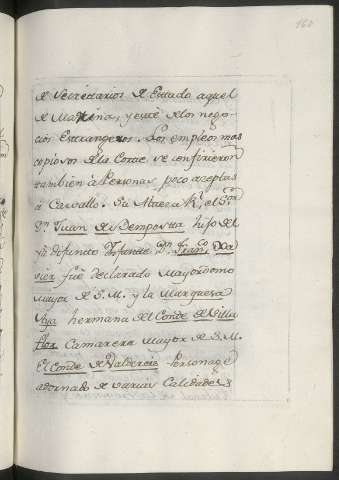 160
de Secretarios de Estado aquel
de Marina, y este de los nego-
cios Estrangeros. Los empleos mas
copiosos de la Corte se confirieron
tambien à Personas poco aceptas
à Carvallo. Su
Dn. Juan de Bemposta hijo del
difunto Infante Dn. Franco. Xa-
vier fué declarado Mayordomo
Mayor de S. M. y la Marquesa
hermana del Conde de Villa
flor Camarera Mayor de S. M.
El Conde de Valdereis Personage
adornado de varias Calidades